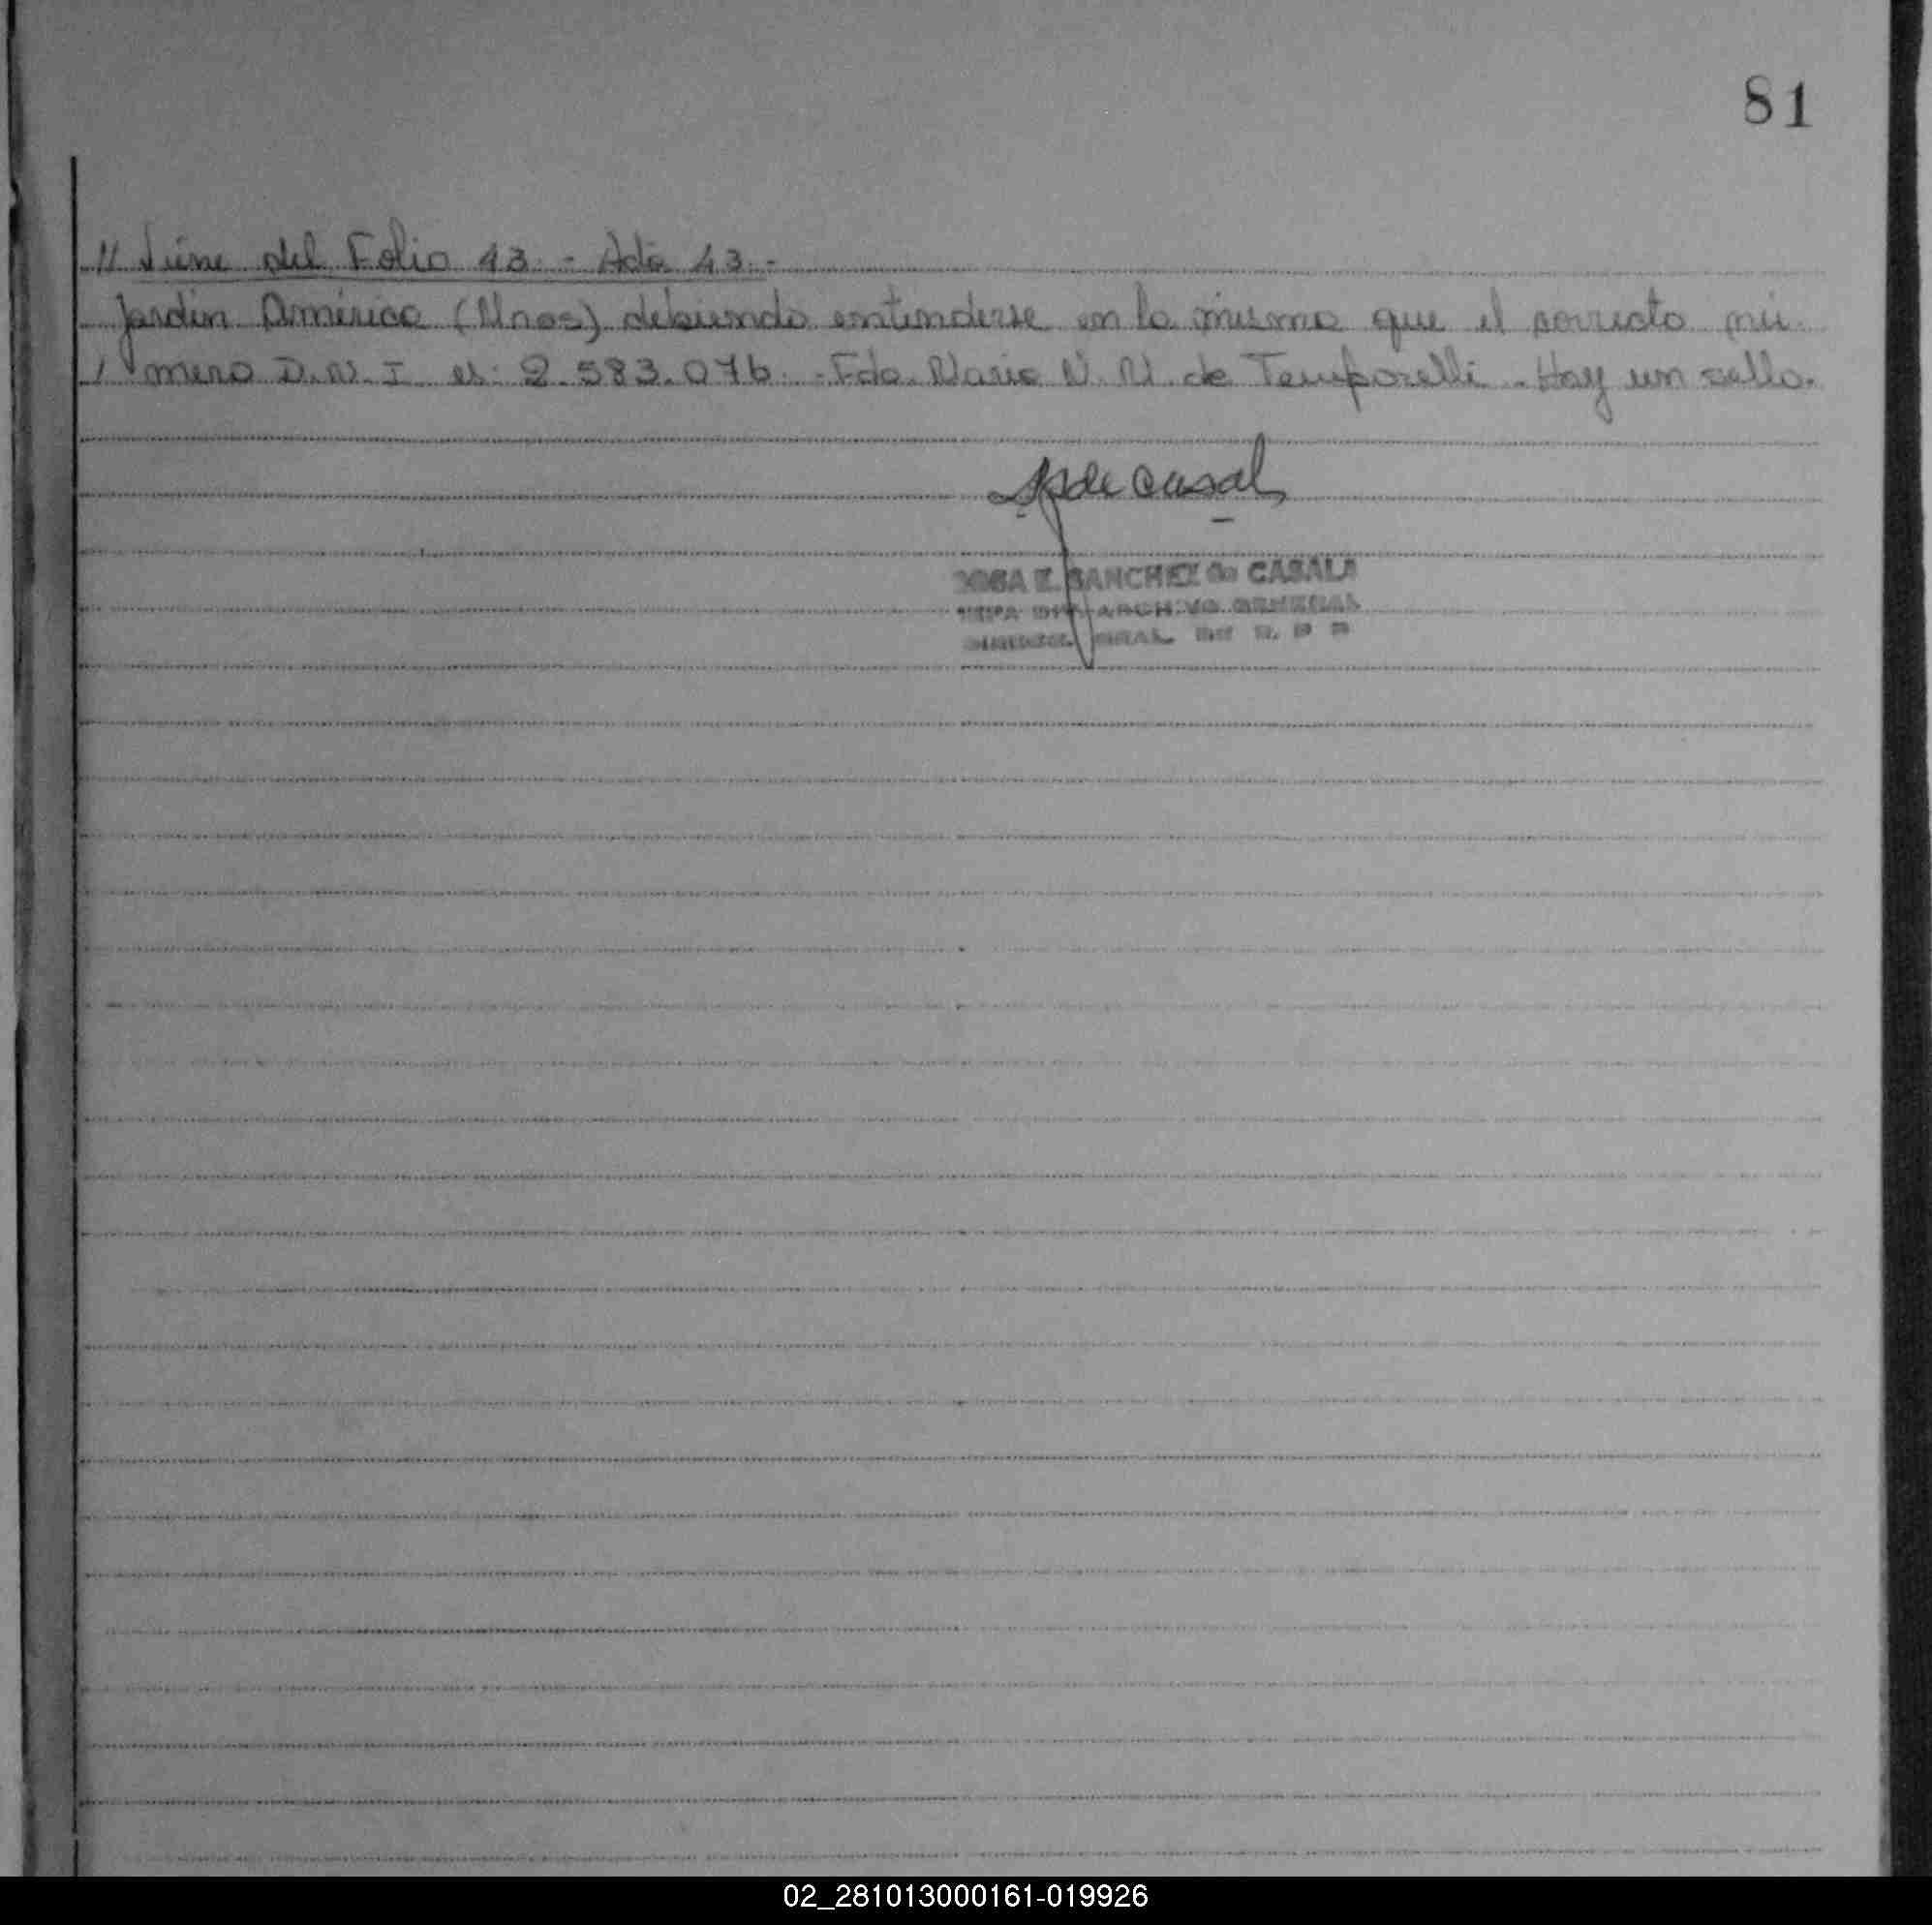 81
// Viene del Folio 43.- Acta 43.-
Jardín América (Mnes) debiendo entenderse en la misma que el correcto nú-
mero D.N.I. es: 2.583.076.- Fdo. Maria N. M. de Temporelli.- Hay un sello.
de Casal
ROSA E. SANCHEZ de CASALA
JEFA DPT. ARCHIVO GENERAL
GRAL. DE R. P P
02_281013000161-019926